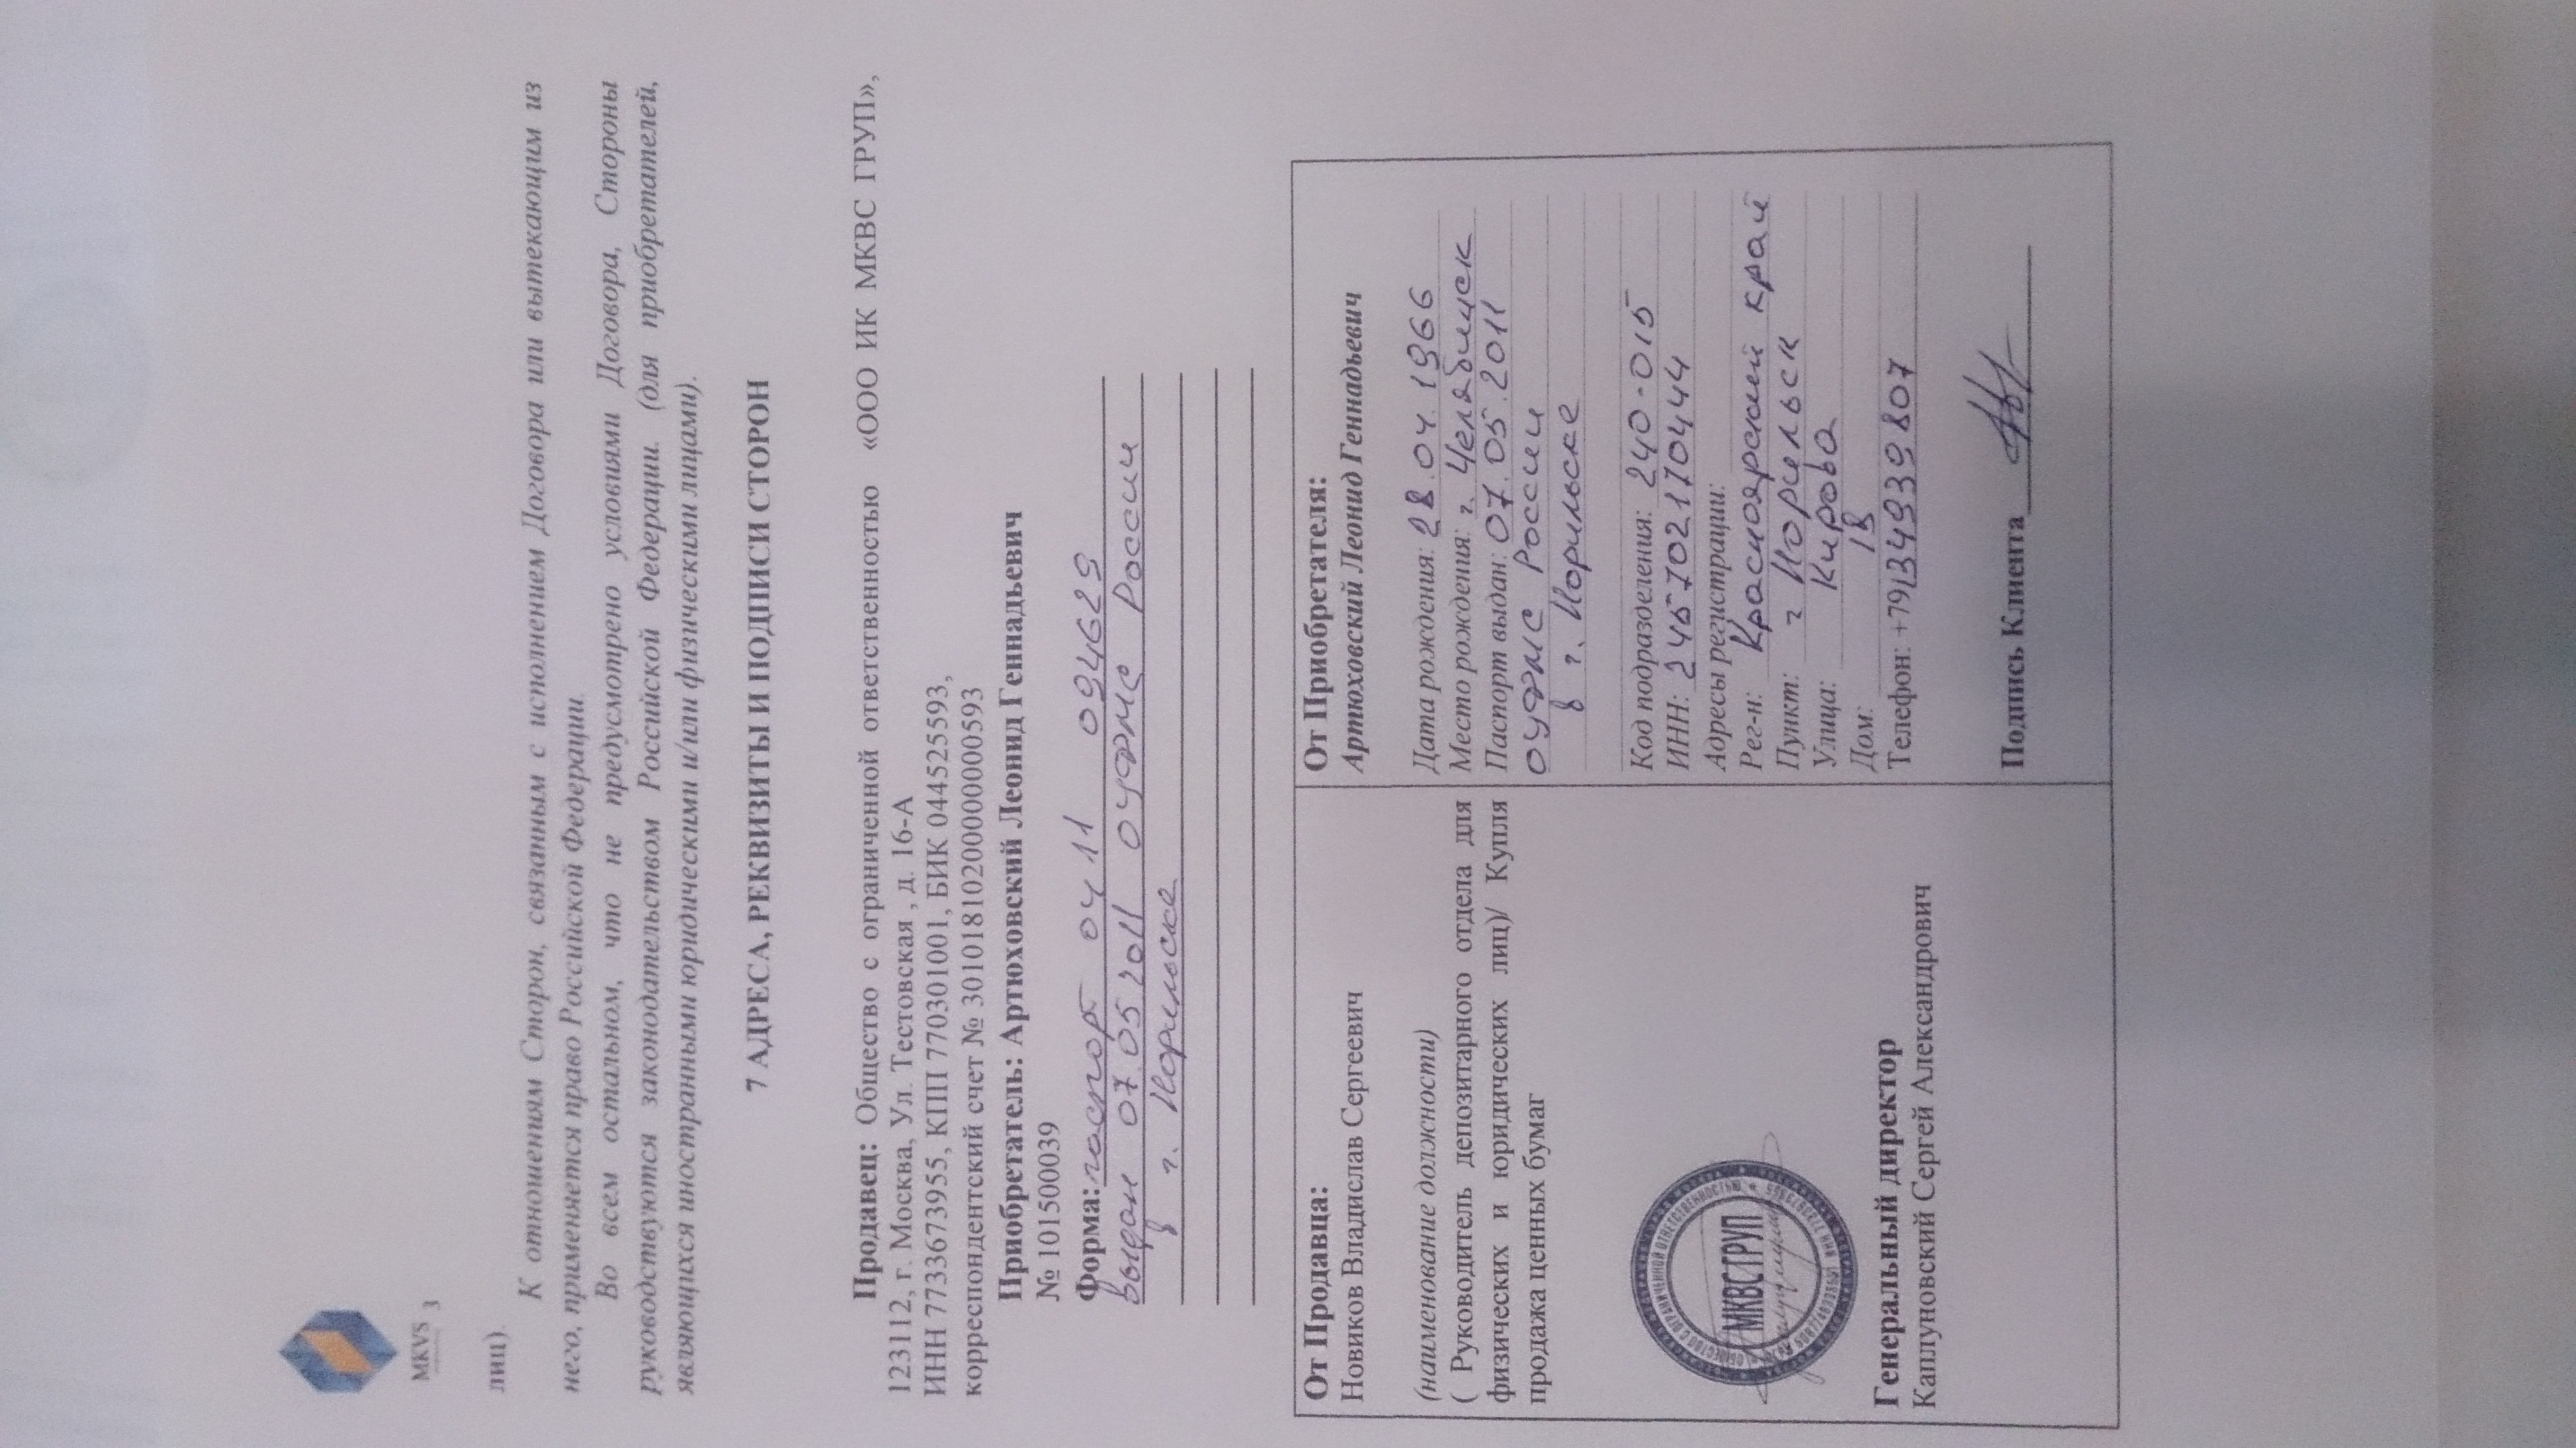 MKVS 3
лиц).
К отношениям Сторон, связанным с исполнением Договора или вытекающим из
него, применяется право Российской Федерации.
Во всем остальном, что не предусмотрено условиями Договора, Стороны
руководствуются законодательством Российской Федерации. (для приобретателей,
являющихся иностранными юридическими и/или физическими лицами).
7 АДРЕСА, РЕКВИЗИТЫ И ПОДПИСИ СТОРОН
Продавец: Общество с ограниченной ответственностью «ООО ИК МКВС ГРУП»,
123112, г. Москва, Ул. Тестовская , д. 16-А
ИНН 7733673955, КПП 770301001, БИК 044525593,
корреспондентский счет № 30101810200000000593
Приобретатель: Артюховский Леонид Геннадьевич
№ 101500039
Форма: паспорт 04 11 094629
выдан 07.05 2011 ОУФМС России
в г. Норильске
От Продавца:
Новиков Владислав Сергеевич
(наименование должности)
( Руководитель депозитарного отдела для
физических и юридических лиц)/ Купля
продажа ценных бумаг
ОБЩЕСТВО С ОГРАНИЧЕННОЙ ОТВЕТСТВЕННОСТЬЮ
МКВС ГРУП
Генеральный директор
Каплуновский Сергей Александрович
От Приобретателя:
Артюховский Леонид Геннадьевич
Дата рождения: 28.04.1966
Место рождения: г. Челябинск
Паспорт выдан: 07.05.2011
ОУФМС России
в г. Норильске
Код подразделения: 240-015
ИНН: 245702170444
Адресы регистрации:
Рег-н: Красноярский край
Пункт: г Норильск
Улица: Кирова
Дом: 18
Телефон: +79134939807
Подпись Клиента